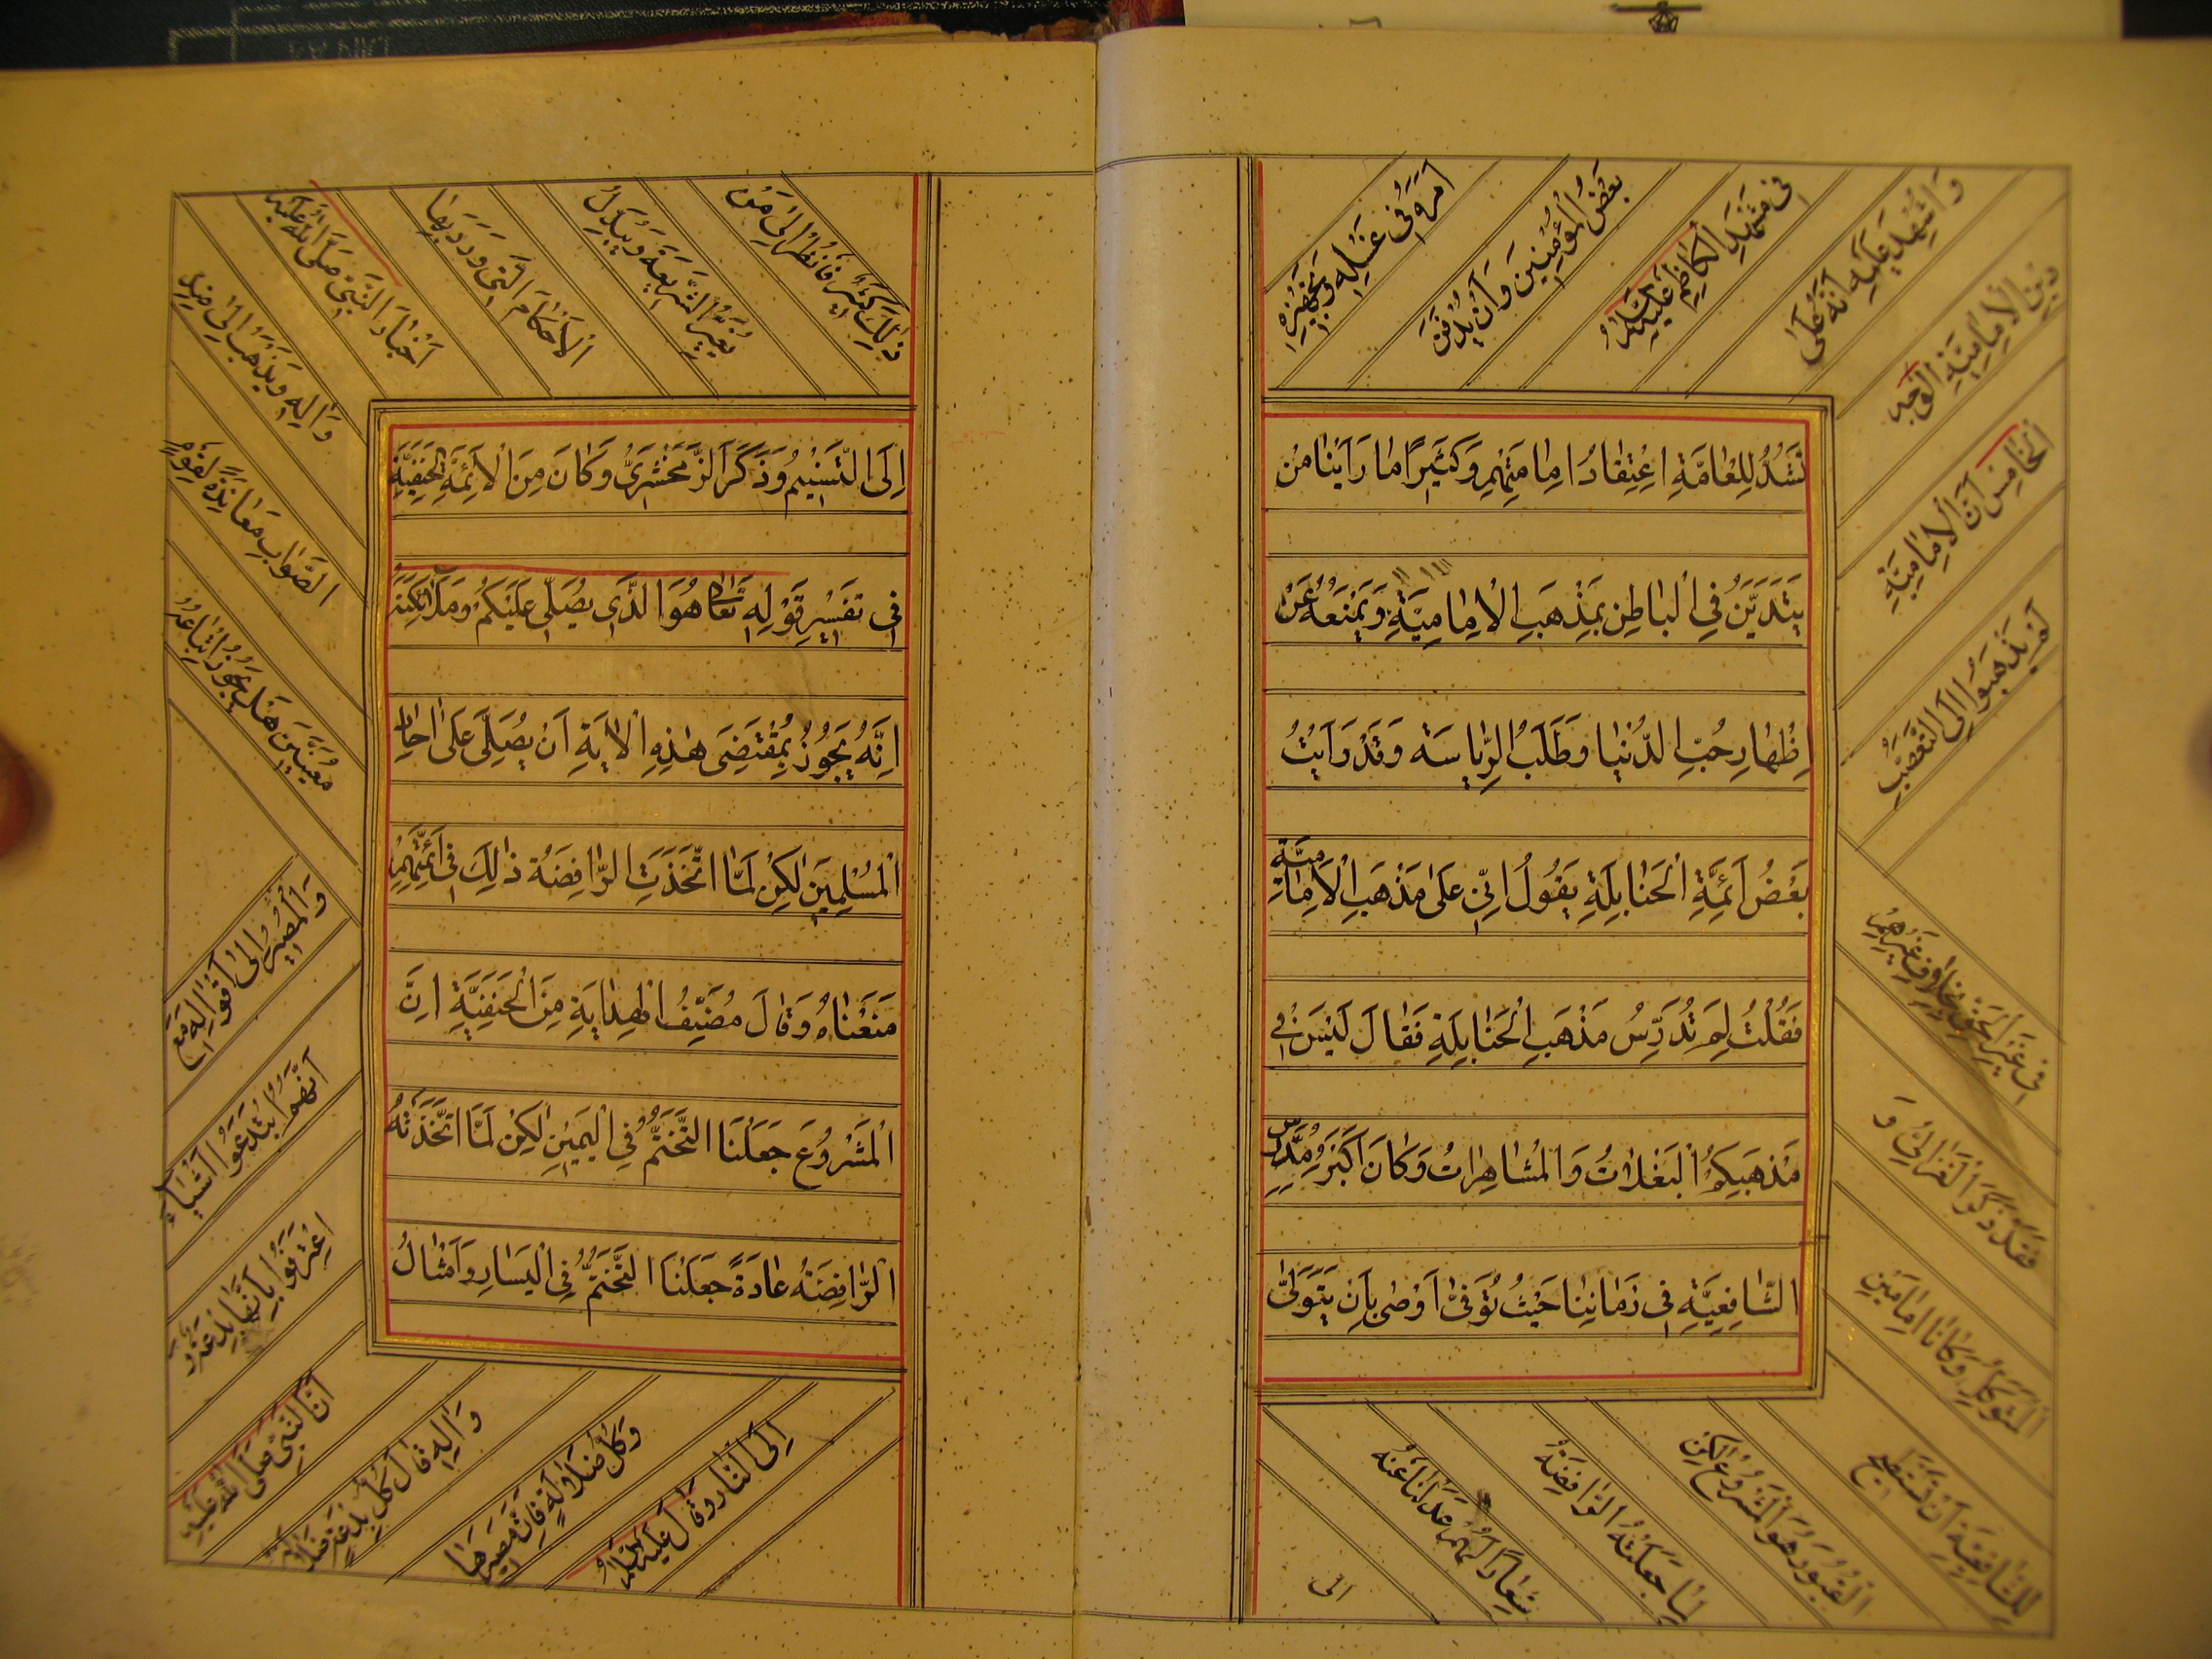 تَشَدُّ لِلْعَامَّةِ اعْتِقَادُ امِامَتِهِمِ وَكَثَيِرًا مَا رَاَيْنَا مَنْ
يَتَدَيَّنُ فِي الْبَاطِنِ بِمَذْهَبِ الْاِمَامِيَّةِ وَيَمْنَعُهُ عَنْ
اِظْهَارِ حُبِّ الدُّنْيَا وَطَلَبُ الرِّيَاسَة وَقَدْ رَاَيْتُ
بَعْضُ اَئِمَّةِ الْحَنَابِلَةِ يَقُولُ اِنِّي عَلَى مَذْهَبِ الْاِمَامِيَّةِ
فَقُلْتُ لِمَ تُدَرِّسُ مَذْهَبِ الْحَنَابِلَةِ فَقَالَ لَيْسَ فِي
مَذْهَبِكُمُ الْبَغْلَاتُ وَالْمُشَاهِرَاتُ وَكَانَ اَكْبَرُ مُدَرِّسِ
الشَّافِعِيَّةِ فِي زَمَانِنَا حَيْثُ تُوَفِّى اَوْصٰى بِاَنْ يَتَوَلّٰى
اَمْرَهُ فِى غُسْلِهِ وَتَجْهِيزِهِ
بَعْضُ الْمُؤْمِنِينَ وَاَنْ يُدْفَنَ
فِى مَشْهَدِ الْكَاظِمِ عَلَيْهِ السَّلَامُ
وَاَشْهَدَ عَلَيْهِ اَنَّهُ عَلٰى
دِينِ الْاِمَامِيَّةِ الْوَجْهُ
الْخَامِسُ اَنَّ الْاِمَامِيَّةِ
لَمْ يَذْهَبُوا اِلَى التَّعَصُّبِ
فِى غَيْرِ الْحَقِّ بِخِلَافِ غَيْرِهِمْ
فَقَدْ ذَكَرَ الْغَزَالِيُّ وَ
الْمُتَوَكِّلُ وَكَانَا اِمَامَيْنِ
لِلشَّافِعِيَّةِ اَنَّ تَسْطِيحَ
الْقُبُورِ هُوَ الْمَشْرُوعُ لٰكِنْ
لَمَّا جَعَلَتْهُ الرَّافِضَةُ
شِعَارًا لَهُمْ عَدَلْنَا عَنْهُ
الى
اِلَى التَّسْنِيمِ وَذَكَرَ الزَّمَخْشَرِىُّ وَكَانَ مِنَ الْاَئِمَّةِ الْحَنَفِيَّةِ
فِى تَفْسِيرِ قَوْلِهِ تَعَالٰى هُوَ الَّذِى يُصَلِّى عَلَيْكُمْ وَمَلَائِكَتُهُ
اِنَّهُ يَجُوزُ بِمُقْتَضَى هٰذِهِ الْاٰيَةِ اَنْ يُصَلَّى عَلَى اٰحَادِ
الْمُسْلِمِينَ لٰكِنْ لَمَّا اتَّخَذَتِ الرَّافِضَةُ ذٰلِكَ فِى اَئِمَّتِهِمْ
مَنَعْنَاهُ وَقَالَ مُصَنِّفُ الْهِدَايَةِ مِنَ الْحَنَفِيَّةِ اِنَّ
الْمَشْرُوعَ جَعَلْنَا التَّخَتُّمَ فِى الْيَمِينِ لٰكِنْ لَمَّا اتَّخَذَتْهُ
الرَّافِضَةُ عَادَةً جَعَلْنَا التَّخَتُّمَ فِى الْيَسَارِ وَاَمْثَالُ
ذٰلِكَ كَثِيرٌ فَانْظُرْ اِلٰى مَنْ
يُغَيِّرُ الشَّرِيعَةَ وَيُبَدِّلُ
الْاَحْكَامَ الَّتِى وَرَدَ بِهَا
اَخْبَارُ النَّبِىِّ صَلَّى اللّٰهُ عَلَيْهِ
وَاٰلِهِ وَيَذْهَبُ اِلٰى ضِدِّ
الصَّوَابِ مُعَانَدَةً لِقَوْمٍ
مُعَيَّنِينَ هَلْ يَجُوزُ اتِّبَاعُهُ
وَالْمَصِيرُ اِلٰى اَقْوَالِهِ مَعَ
اَنَّهُمُ ابْتَدَعُوا اَشْيَاءَ
اِعْتَرَفُوا بِاَنَّهَا بِدْعَةٌ وَ
اَنَّ النَّبِىَّ صَلَّى اللّٰهُ عَلَيْهِ
وَاٰلِهِ قَالَ كُلُّ بِدْعَةٍ ضَلَالَةٌ
وَكُلُّ ضَلَالَةٍ فَاِنَّ مَصِيرَهَا
اِلَى النَّارِ وَقَالَ عَلَيْهِ السَّلَامُ